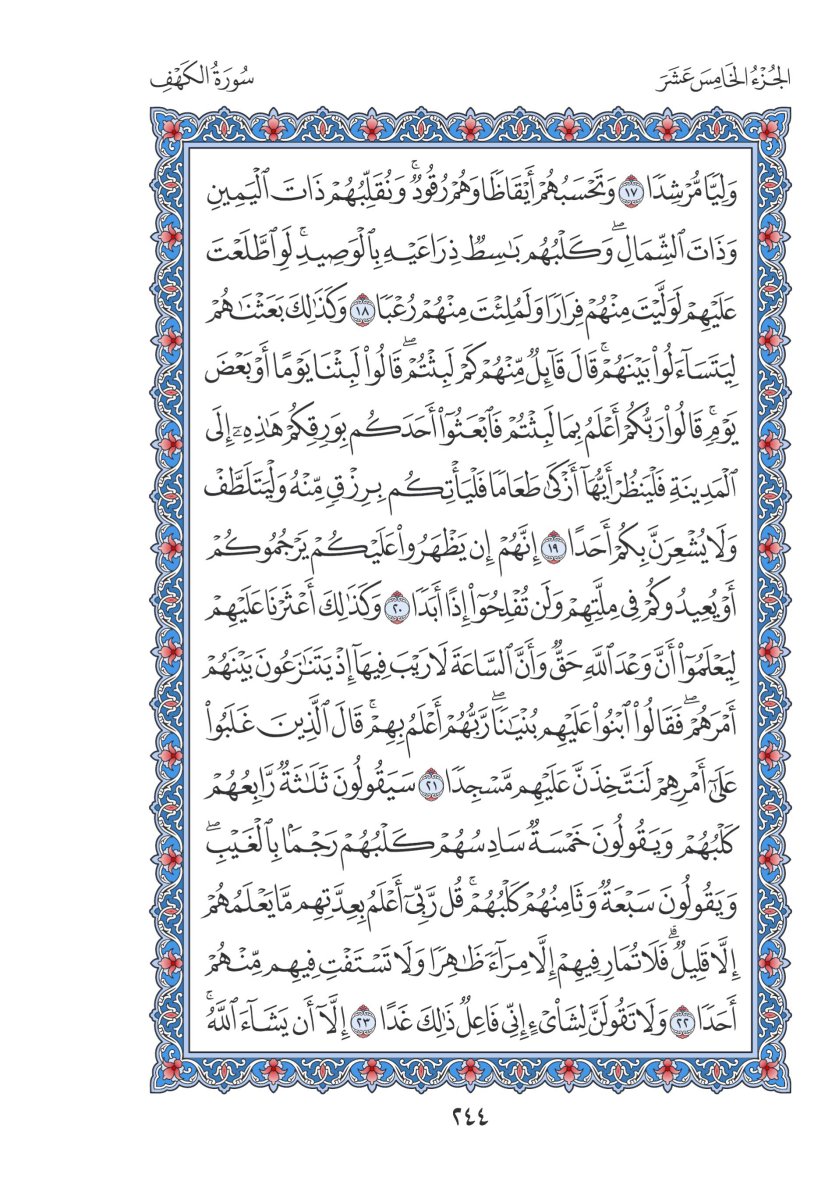 الجُزْءُ الخَامِسَ عَشَرَ
سُورَةُ الكَهْفِ
وَلِيًّا مُّرْشِدًا ١٧ وَتَحْسَبُهُمْ أَيْقَاظًا وَهُمْ رُقُودٌۚ وَنُقَلِّبُهُمْ ذَاتَ ٱلْيَمِينِ
وَذَاتَ ٱلشِّمَالِۖ وَكَلْبُهُم بَٰسِطٌ ذِرَاعَيْهِ بِٱلْوَصِيدِۚ لَوِ ٱطَّلَعْتَ
عَلَيْهِمْ لَوَلَّيْتَ مِنْهُمْ فِرَارًا وَلَمُلِئْتَ مِنْهُمْ رُعْبًا ١٨ وَكَذَٰلِكَ بَعَثْنَٰهُمْ
لِيَتَسَآءَلُوا۟ بَيْنَهُمْۚ قَالَ قَآئِلٌ مِّنْهُمْ كَمْ لَبِثْتُمْۖ قَالُوا۟ لَبِثْنَا يَوْمًا أَوْ بَعْضَ
يَوْمٍۚ قَالُوا۟ رَبُّكُمْ أَعْلَمُ بِمَا لَبِثْتُمْ فَٱبْعَثُوٓا۟ أَحَدَكُم بِوَرِقِكُمْ هَٰذِهِۦٓ إِلَى
ٱلْمَدِينَةِ فَلْيَنظُرْ أَيُّهَآ أَزْكَىٰ طَعَامًا فَلْيَأْتِكُم بِرِزْقٍ مِّنْهُ وَلْيَتَلَطَّفْ
وَلَا يُشْعِرَنَّ بِكُمْ أَحَدًا ١٩ إِنَّهُمْ إِن يَظْهَرُوا۟ عَلَيْكُمْ يَرْجُمُوكُمْ
أَوْ يُعِيدُوكُمْ فِى مِلَّتِهِمْ وَلَن تُفْلِحُوٓا۟ إِذًا أَبَدًا ٢٠ وَكَذَٰلِكَ أَعْثَرْنَا عَلَيْهِمْ
لِيَعْلَمُوٓا۟ أَنَّ وَعْدَ ٱللَّهِ حَقٌّ وَأَنَّ ٱلسَّاعَةَ لَا رَيْبَ فِيهَآ إِذْ يَتَنَٰزَعُونَ بَيْنَهُمْ
أَمْرَهُمْۖ فَقَالُوا۟ ٱبْنُوا۟ عَلَيْهِم بُنْيَٰنًاۖ رَّبُّهُمْ أَعْلَمُ بِهِمْۚ قَالَ ٱلَّذِينَ غَلَبُوا۟
عَلَىٰٓ أَمْرِهِمْ لَنَتَّخِذَنَّ عَلَيْهِم مَّسْجِدًا ٢١ سَيَقُولُونَ ثَلَٰثَةٌ رَّابِعُهُمْ
كَلْبُهُمْ وَيَقُولُونَ خَمْسَةٌ سَادِسُهُمْ كَلْبُهُمْ رَجْمًۢا بِٱلْغَيْبِۖ
وَيَقُولُونَ سَبْعَةٌ وَثَامِنُهُمْ كَلْبُهُمْۚ قُل رَّبِّىٓ أَعْلَمُ بِعِدَّتِهِم مَّا يَعْلَمُهُمْ
إِلَّا قَلِيلٌۗ فَلَا تُمَارِ فِيهِمْ إِلَّا مِرَآءً ظَٰهِرًا وَلَا تَسْتَفْتِ فِيهِم مِّنْهُمْ
أَحَدًا ٢٢ وَلَا تَقُولَنَّ لِشَا۟ىْءٍ إِنِّى فَاعِلٌ ذَٰلِكَ غَدًا ٢٣ إِلَّآ أَن يَشَآءَ ٱللَّهُۚ
٢٤٤